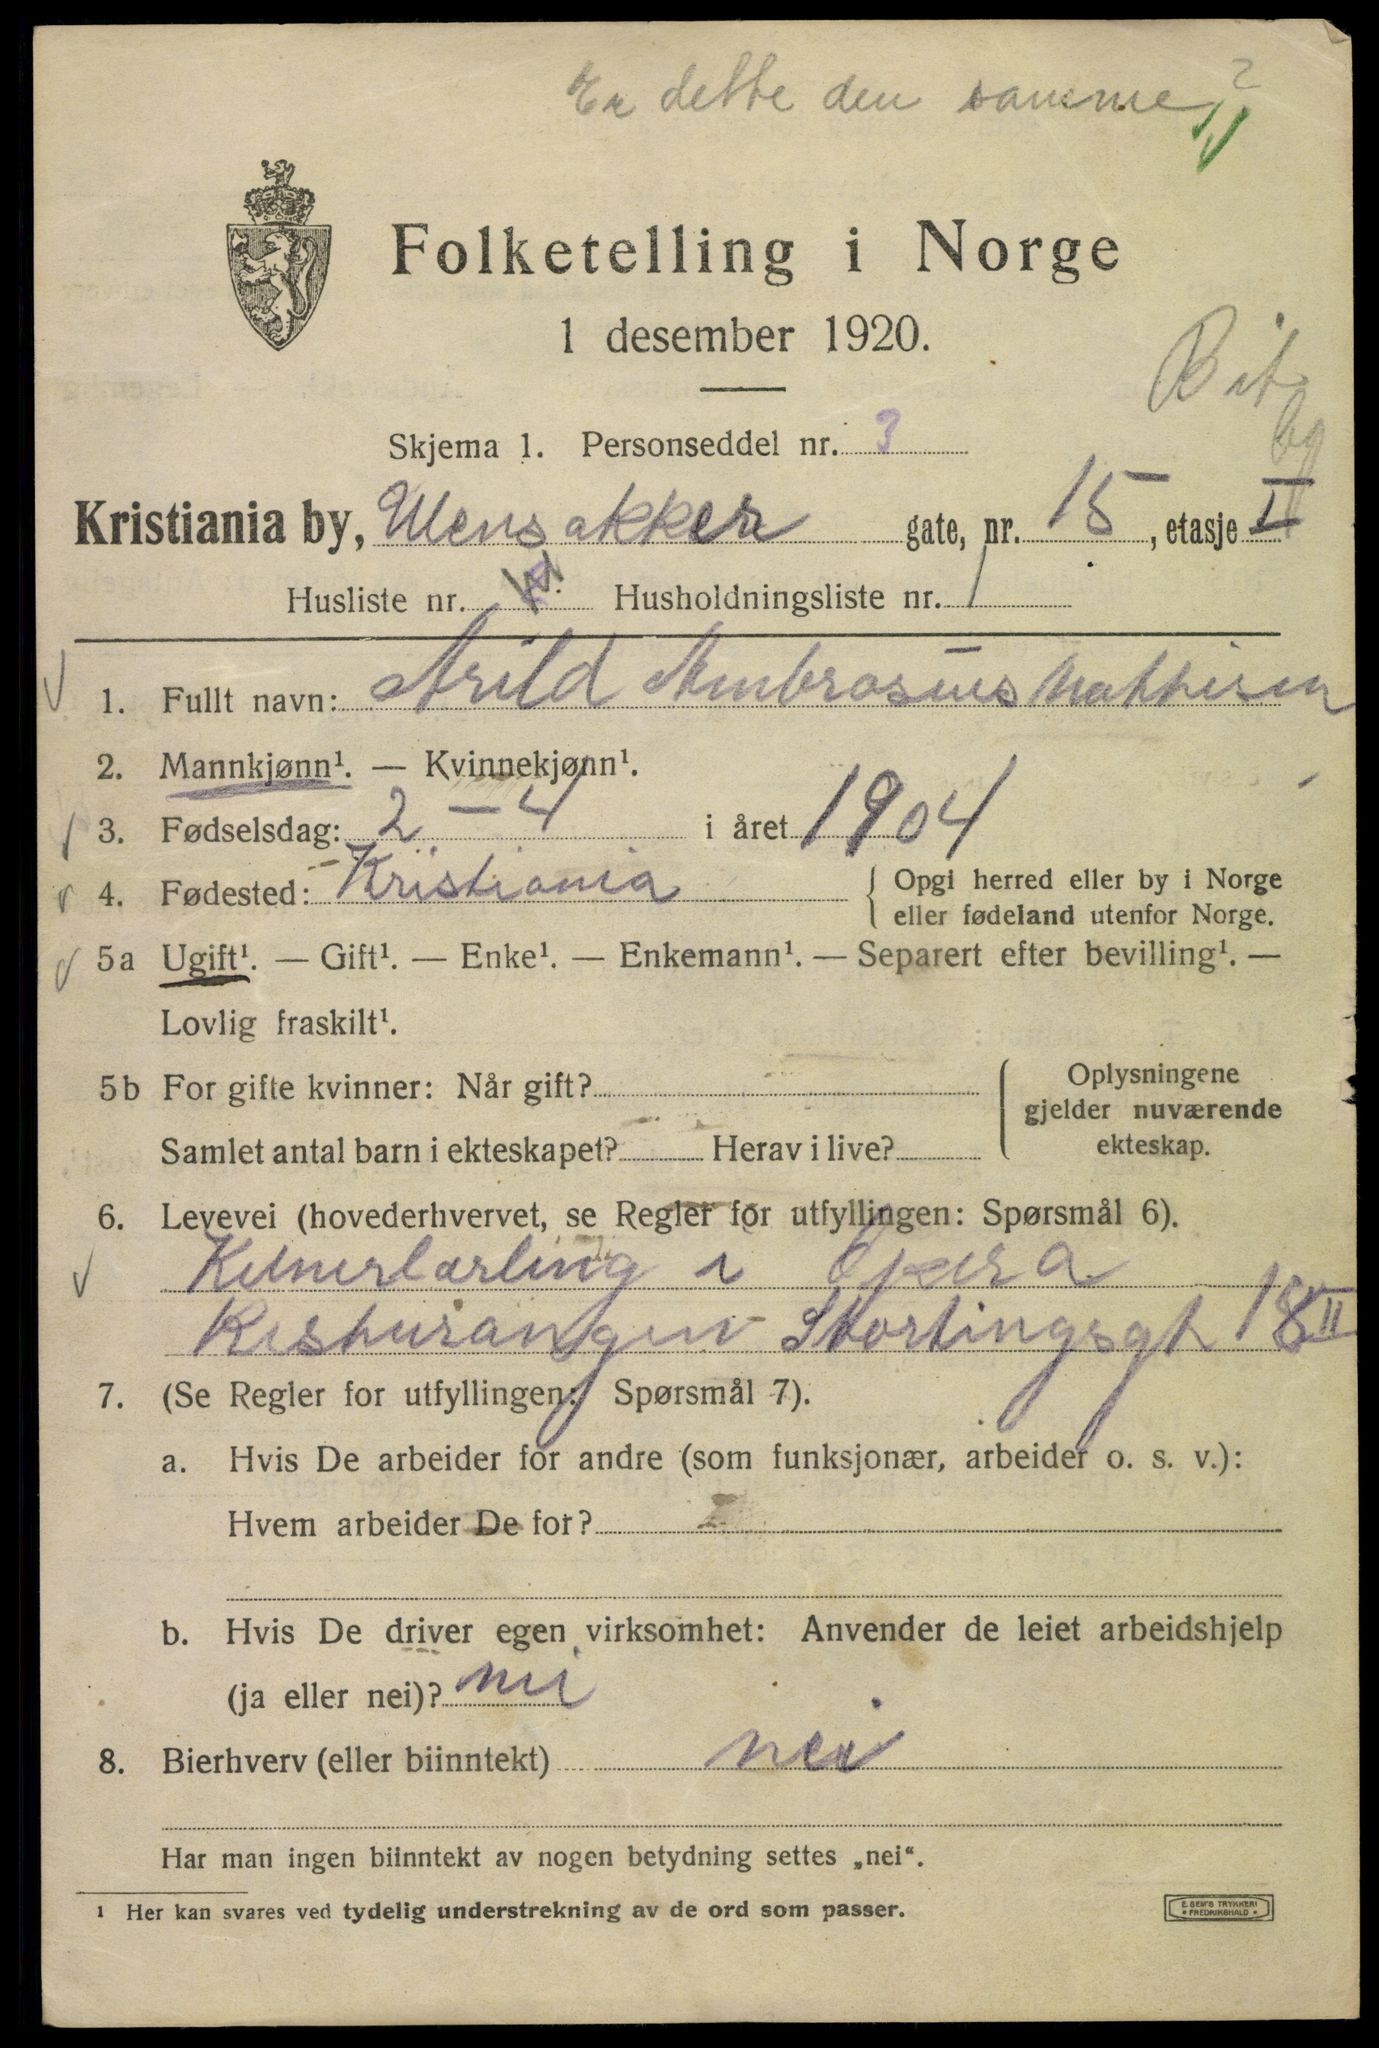 Er dette den samme?
Folketelling i Norge
1 desember 1920.
Skjema 1. Personseddel nr. 3
Kristiania by, Ulensakker gate, nr. 15, etasje II
Husliste nr. Husholdningsliste nr. 1
1. Fullt navn: Arild Ambrosius Mathisen
2. Mannkjønn¹. — Kvinnekjønn¹.
3. Fødselsdag: 2 - 4 i året 1904
4. Fødested: Kristiania { Opgi herred eller by i Norge
eller fødeland utenfor Norge.
5a Ugift¹. — Gift¹. — Enke¹. — Enkemann¹. — Separert efter bevilling¹. —
Lovlig fraskilt¹.
5b For gifte kvinner: Når gift? { Oplysningene
gjelder nuværende
Samlet antal barn i ekteskapet? Herav i live? ekteskap.
6. Levevei (hovederhvervet, se Regler for utfyllingen: Spørsmål 6).
Kelnerlærling i Opera
Resturangen Stortingsgt 18 II
7. (Se Regler for utfyllingen: Spørsmål 7).
a. Hvis De arbeider for andre (som funksjonær, arbeider o. s. v.):
Hvem arbeider De for?
b. Hvis De driver egen virksomhet: Anvender de leiet arbeidshjelp
(ja eller nei)? nei
8. Bierhverv (eller biinntekt) nei
Har man ingen biinntekt av nogen betydning settes „nei“.
1 Her kan svares ved tydelig understrekning av de ord som passer.
E. SEM'S TRYKKERI
FREDRIKSHALD